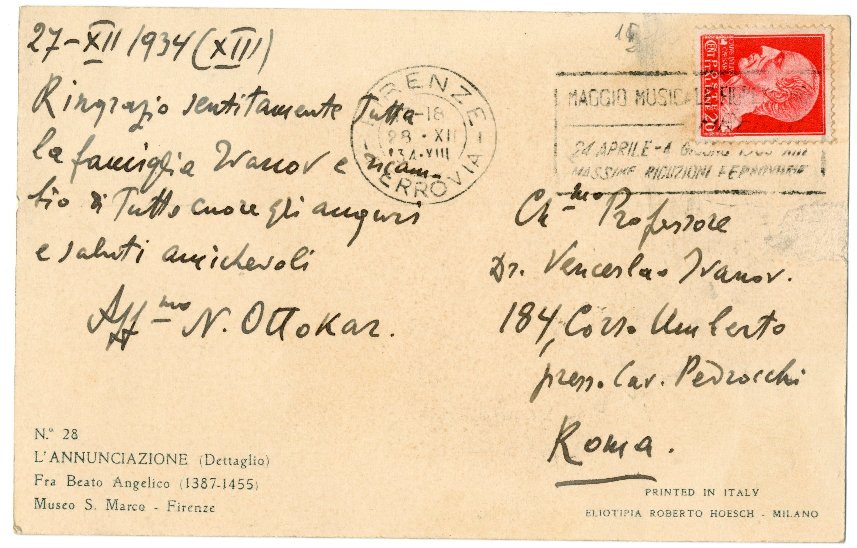 27-XII 1934 (XIII)
Ringrazio sentitamente Tutta
la famiglia Ivanov e ricam-
bio di Tutto cuore gli auguri
e saluti amichevoli
Aff-mo N. Ottokar.
N.° 28
L'ANNUNCIAZIONE (Dettaglio)
Fra Beato Angelico (1387-1455)
Museo S. Marco - Firenze
15
FIRENZE
-18
28 · XII
34·XIII
FERROVIA
MAGGIO MUSICALE
24 APRILE - 4 GIUGNO XIII
MASSIME RIDUZIONI FERROVIARIE
POSTE ITALIANE
CENT. 20
Ch-mo Professore
Dr. Venceslao Ivanov.
184, Corso Umberto
presso Cav. Pedrocchi
Roma.
PRINTED IN ITALY
ELIOTIPIA ROBERTO HOESCH - MILANO